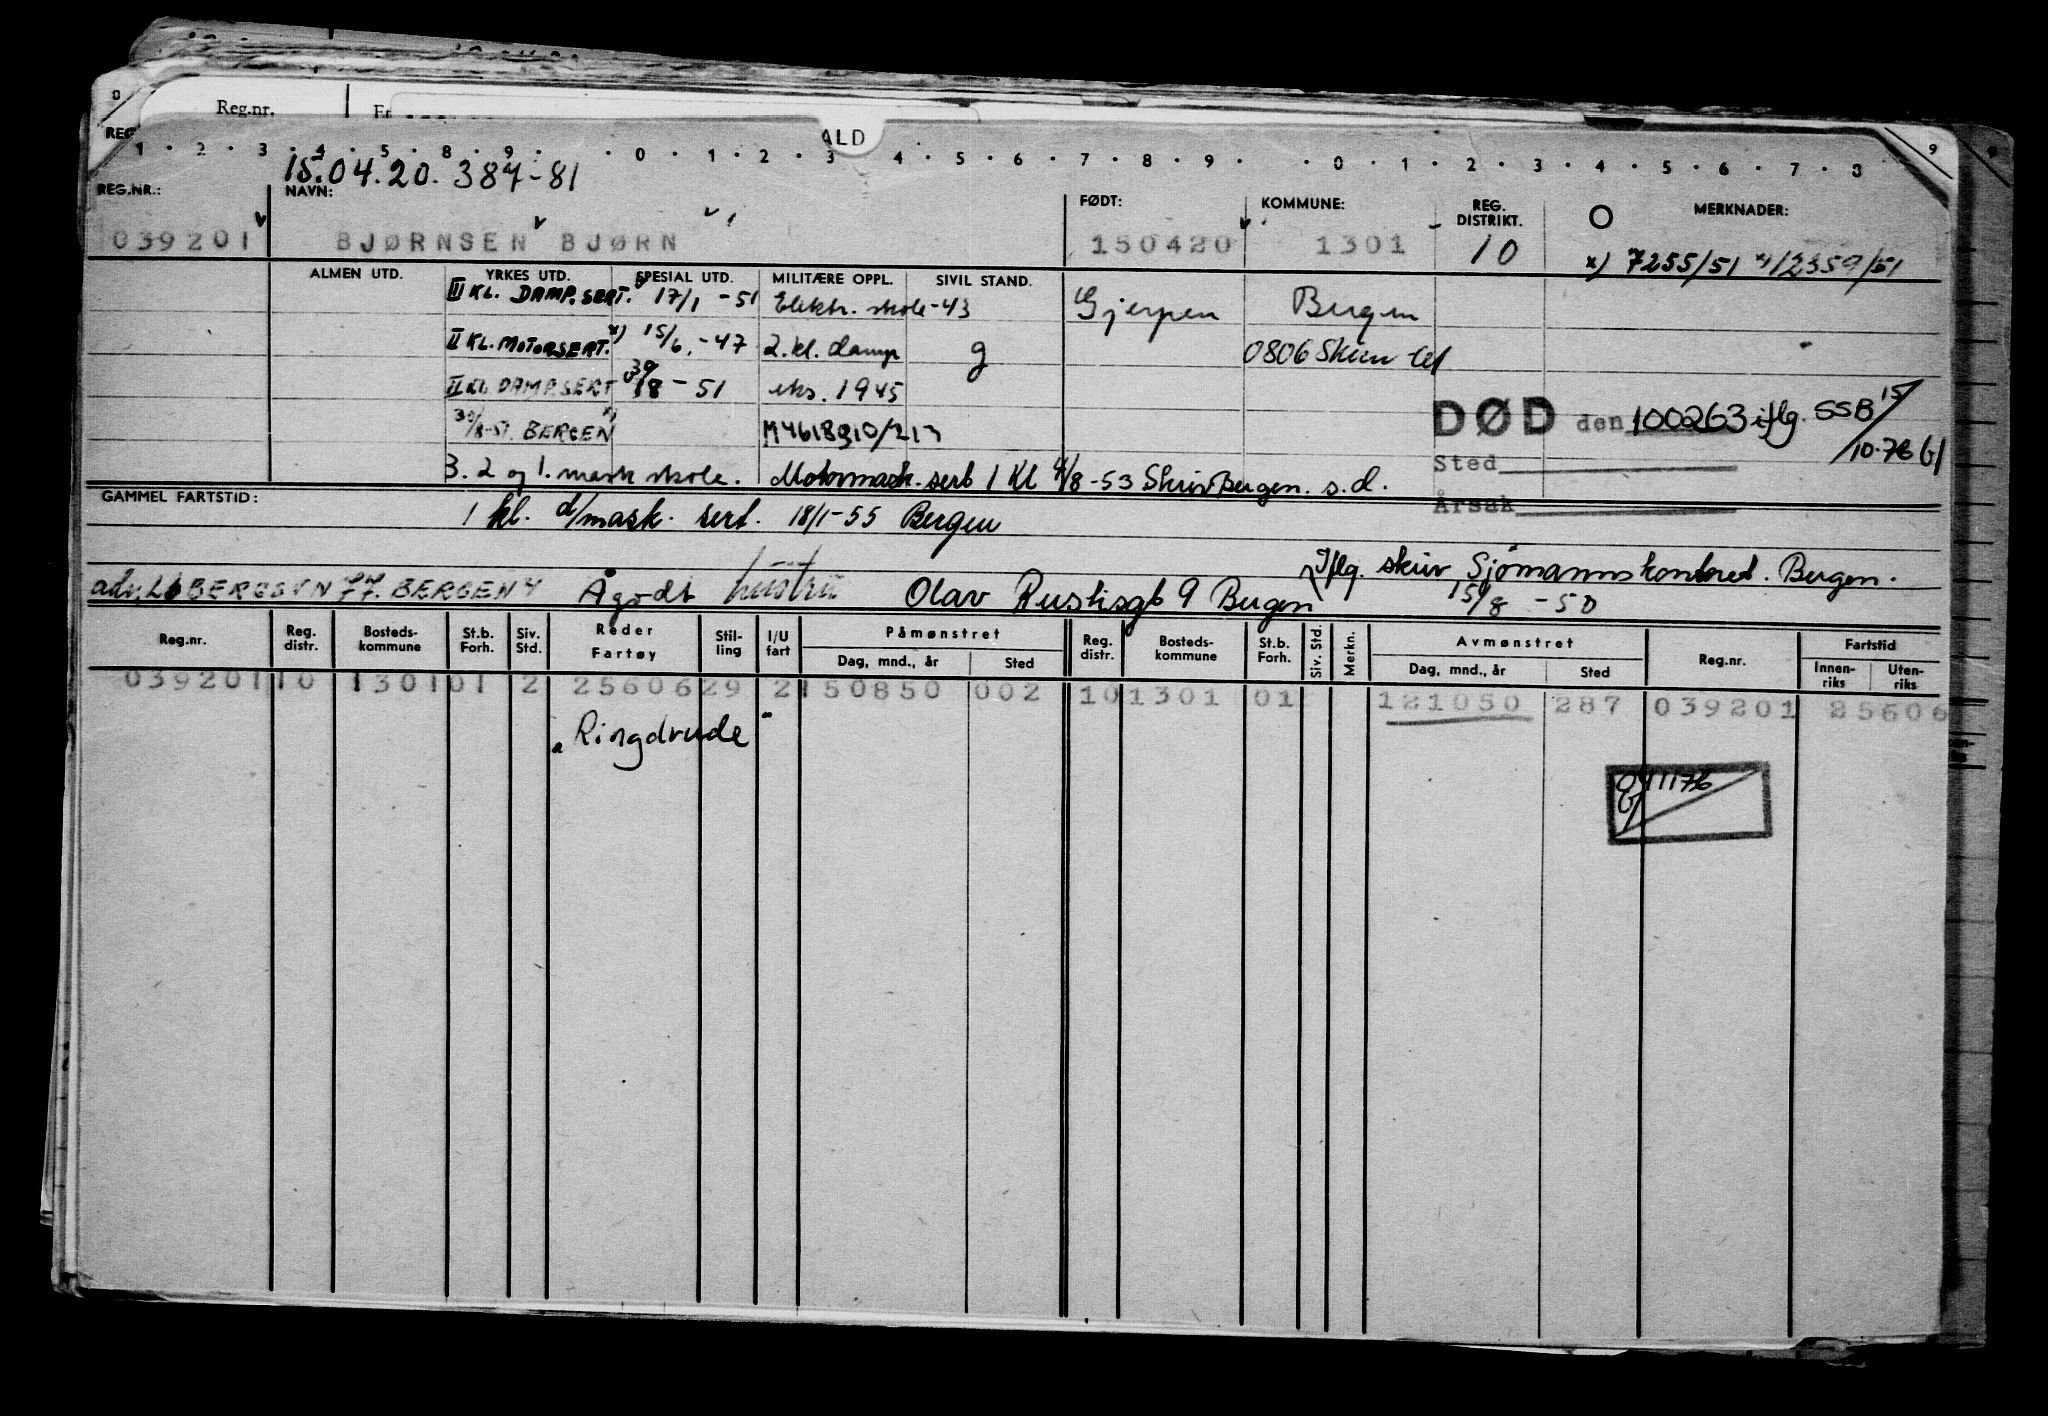 Reg.nr.
ALD
1 · 2 · 3 · 4 · 5 · 8 · 9 · 0 · 1 2 · 3 · 4 · 5 · 6 · 7 · 8 · 9 · 0 · 1 · 2 · 3 · 4 · 5 · 6 · 7 · 8 9
15.04.20.387-81
REG.NR.: NAVN: FØDT: KOMMUNE: REG. DISTRIKT. MERKNADER:
039201 BJØRNSEN BJØRN 150420 1301 10 x) 7255/51 x) 12359/51
ALMEN UTD. YRKES UTD. SPESIAL UTD. MILITÆRE OPPL. SIVIL STAND.
III KL. DAMP.SERT. 17/1 -51 Elektr. skole -43 Gjerpen Bergen
II KL. MOTORSERT. x) 15/6. -47 2. kl. damp g 0806 Skien
II KL DAMPSERT 30/8 - 51 eks. 1945
DØD den 100263 iflg. SSB 15/10-76
30/8-51. BERGEN x) M4618910/213
Sted
3. 2 og 1. mask skole. Motormask. sert 1 Kl 4/8-53 Skriv Bergen. s.d.
GAMMEL FARTSTID: Årsak
1 kl. d/mask. sert. 18/1-55 Bergen
Iflg. skriv Sjömannskontoret. Bergen.
15/8 -50
hustru Olav Rustisgt 9 Bergen
Reg.nr. Reg. distr. Bosteds- kommune St.b. Forh. Siv. Std. Reder Fartøy Stil- ling I/U fart Påmønstret Reg. distr. Bosteds- kommune St.b. Forh. Siv. Std. Merkn. Avmønstret Reg.nr. Fartstid
Dag, mnd., år Sted Dag, mnd., år Sted Innen- riks Uten- riks
039201 10 1301 01 2 25606 29 2 150850 002 10 1301 01 121050 287 039201 25606
"Ringdrude"
041176